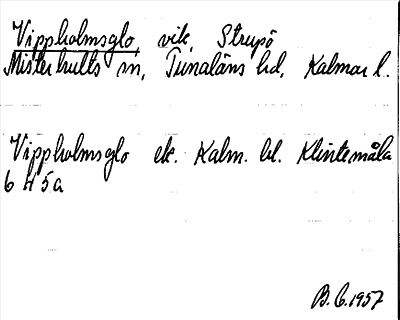 Vippholmsglo, vik, Strupö
Misterhults sn, Tunaläns hd, Kalmar l.
Vippholmsglo ek. Kalm. bl. Klintemåla
6 h 5a
B.C.1957